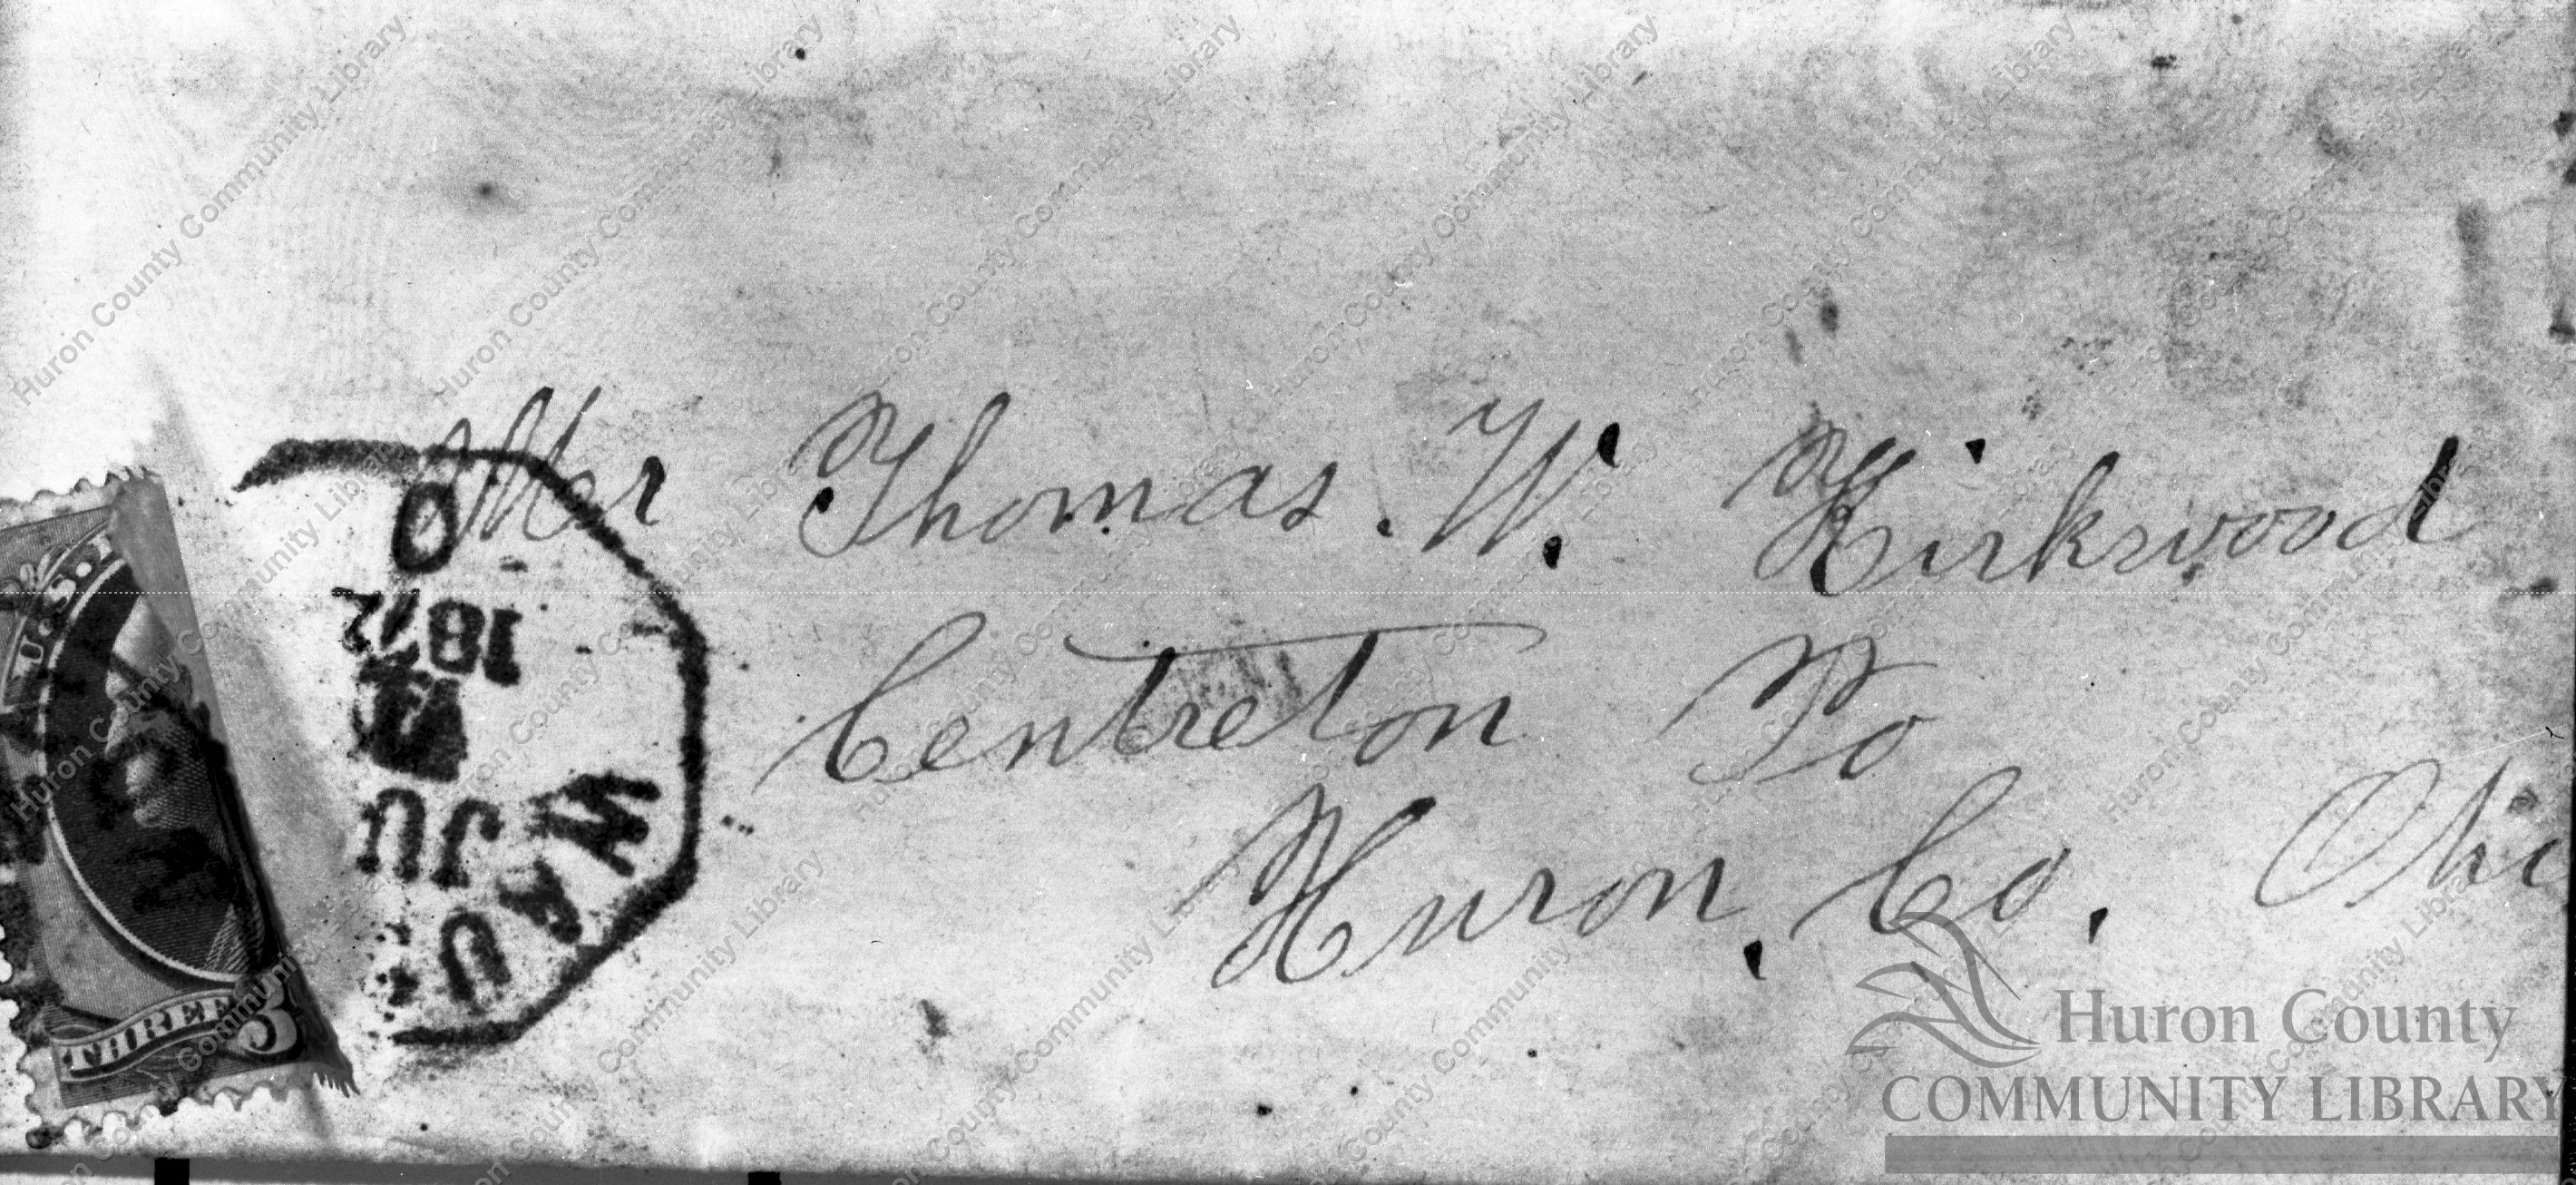 Mr Thomas. W. Kirkwood
Centreton Po
Huron. Co. Ohio
WAU
JU
1872
O
U.S.
THREE 3
Huron County
COMMUNITY LIBRARY
Huron County Community Library